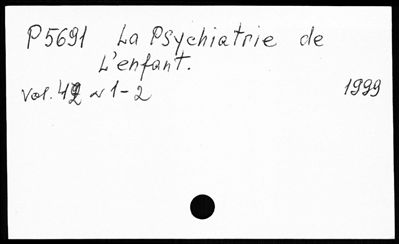 P5691 La Psychiatrie de
L'enfant.
Vol. 42 N 1-2 1999